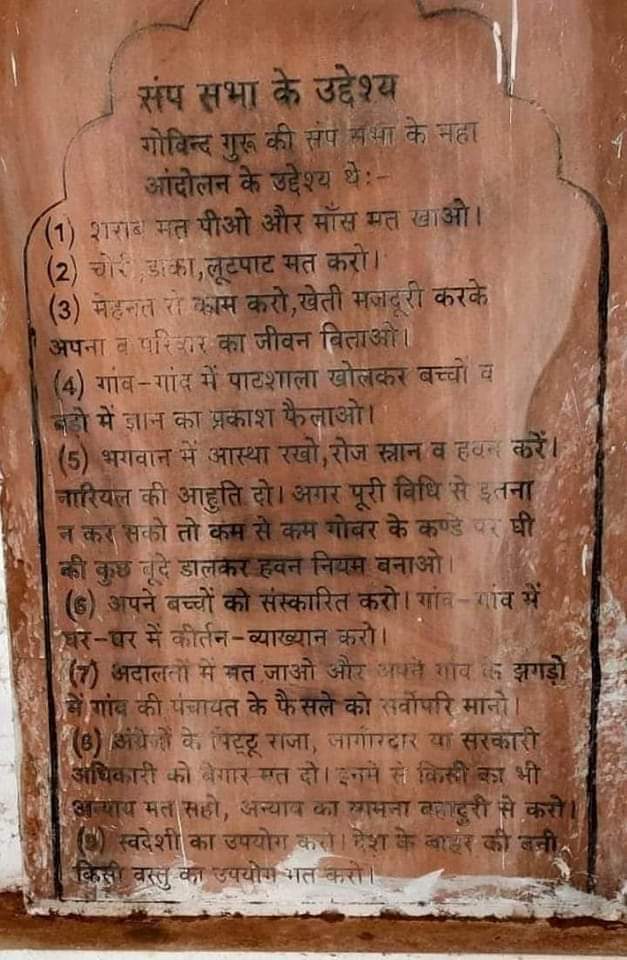 संप सभा के उद्देश्य
गोविन्द गुरू की संप सभा के महा
आंदोलन के उद्देश्य थे:-
(1) शराब मत पीओ और माँस मत खाओ।
(2) चोरी,डाका,लूटपाट मत करो।
(3) मेहनत से काम करो,खेती मजदूरी करके
अपना व परिवार का जीवन बिताओ।
(4) गांव-गांव में पाटशाला खोलकर बच्चों व
बडो में ज्ञान का प्रकाश फैलाओ।
(5) भगवान में आस्था रखो,रोज स्नान व हवन करें।
नारियल की आहुति दो। अगर पूरी विधि से इतना
न कर सको तो कम से कम गोबर के कण्डे पर घी
की कुछ बूदे डालकर हवन नियम बनाओ।
(6) अपने बच्चों को संस्कारित करो। गांव-गांव में
घर-घर में कीर्तन-व्याख्यान करो।
(7) अदालतों में मत जाओ और अपने गांव के झगड़ो
में गांव की पंचायत के फैसले को सर्वोपरि मानो।
(8) अंग्रेजों के पिट्टू राजा, जागीरदार या सरकारी
अधिकारी को बेगार मत दो। इनमें से किसी का भी
अन्याय मत सहो, अन्याय का सामना बहादुरी से करो।
(9) स्वदेशी का उपयोग करो। देश के बाहर की बनी
किसी वस्तु का उपयोग मत करो।